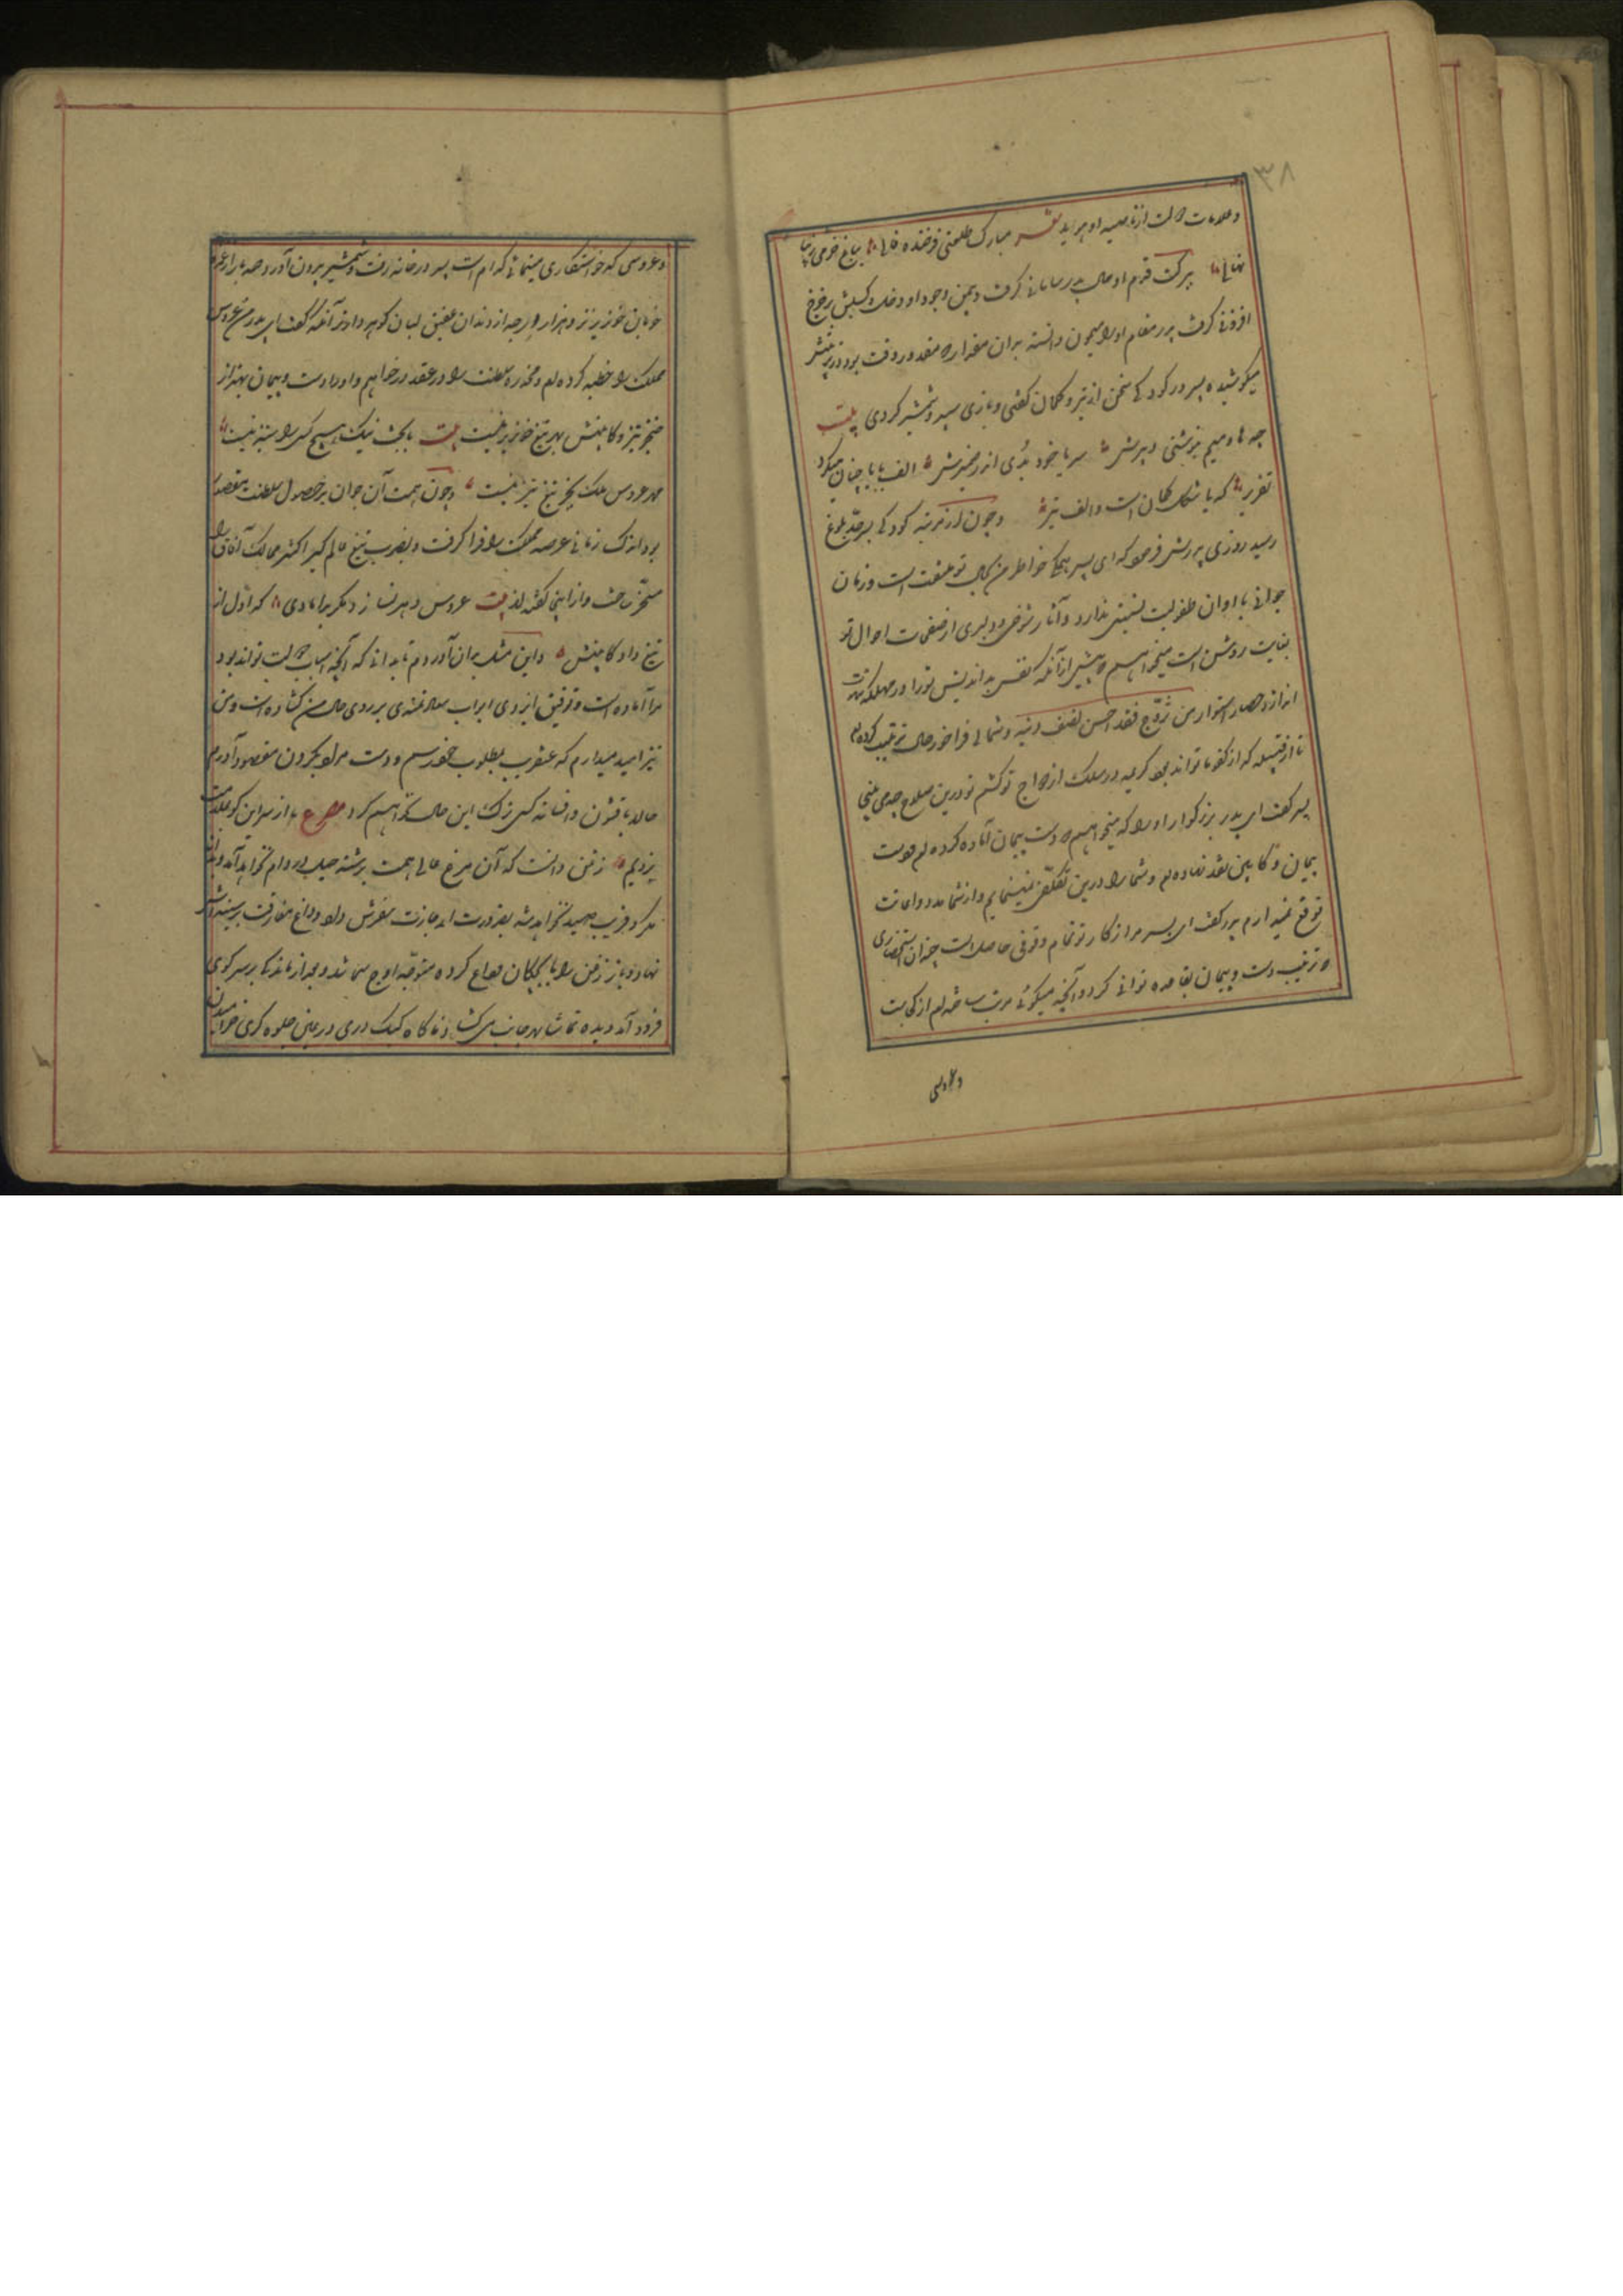 ۳۸
و علامات دولت از ناصیه او هویدا شعر مبارک طلعتی فرخنده فالی بباغ خرمی زیبا
نهالی ببرکت قدم او حال پدر سامانی گرفت و بیمن وجود او دخلش بر خرج
افزونی گرفت پدر مقدم او را میمون دانسته بدان مقداری که مقدور وقت بود در تربیتش
میکوشید و پسر در کودکی سخن از تیر و کمان گفتی و بازی بسپر و شمشیر کردی بیت
چو ها و میم بنوشتی دبیرش سر با خود بدی اندر ضمیرش الف با با چنان میکرد
تقریر که با شکل کمان است و الف تیر و چون از مرتبه کودکی بسرحد بلوغ
رسید روزی پدرش فرمود که ای پسر همگی خواطر من بحال تو ملتفت است و زمان
جوانی با اوان طفولیت نسبتی ندارد و آثار شوخی و دلیری از صفحات احوال تو
بغایت روشن است میخواهم که پیش از آنکه نفس بداندیش تو را در مهلکه شهوت
اندازد حصار استوار من تزوج فقد احصن نصف دینه و شما لی فراخور حال ترتیب کرده ام
تا از قبیله که از کفو ما تواند بود کریمه در سلک ازدواج تو کشم تو درین صلاح چه می بینی
پسر گفت ای پدر بزرگوار او را که میخواهم دست پیمان آماده کرده ام و دست
پیمان و کابین نقد نهاده ام و شما را درین تکلف نمینمایم و از شما مدد و اعانت
توقع نمیدارم پدر گفت ای پسر مرا از کار تو تمام وقوفی حاصل است چندان استحضاری
که ترتیب دست پیمان بقاعده توانی کرد و آنچه میگوئی مرتب ساخته ام از کجاست
و عروسی
و عروسی که خواستگاری مینمائی کدام است پسر در خانه رفت و شمشیر بیرون آورد صد بار از غمزه
خوبان خونریزتر و هزار درجه از دندان عقیق لبان گوهردارتر آنگه گفت ای پدر من عروس
مملکت را خطبه کرده ام و مخدره سلطنت را در عقد درخواهم و او را دست و پیمان بهتر از
خنجر تیز و کابینش بجز تیغ خونریز نیست بیت با بخت نیک هیچ کس را ستیز نیست
مهر عروس ملک بجز تیغ تیز نیست و چون همت آن جوان بر حصول سلطنت مقصور
بود اندک زمانی عرصه مملکت را فرا گرفت و بضرب تیغ عالم گیر اکثر ممالک آفاق را
مسخر ساخت و از اینجا گفته اند بیت عروس دهر نسازد مگر بدامادی که اول از
تیغ داد کابینش و این مثل بدان آوردم تا بدانی که آنچه اسباب دولت تواند بود
مرا آماده است و توفیق ایزدی ابواب سعادتمندی بر روی حال من گشاده است و من
نیز امید میدارم که عنقریب بمطلوب خود رسم و دست مراد بگردن مقصود آورم
حالا بافسون و افسانه کس ترک این حال نخواهم کرد مصرع ما از سر این کو بملامت
نرویم زغن دانست که آن مرغ عالی همت برشته حیله در دام نخواهد آمد و بدانه
مکر و فریب صید نخواهد شد بضرورت اجازت سفرش داد و داغ مفارقت بر سینه آتش
نهاد و باز زغن را با بچگان وداع کرده متوجه اوج سما شد و بعد از ماندگی بر سر کوهی
فرود آمد دیده تماشا بهر جانب می گشاد ناگاه کبک دری در عین جلوه گری خرامیدن